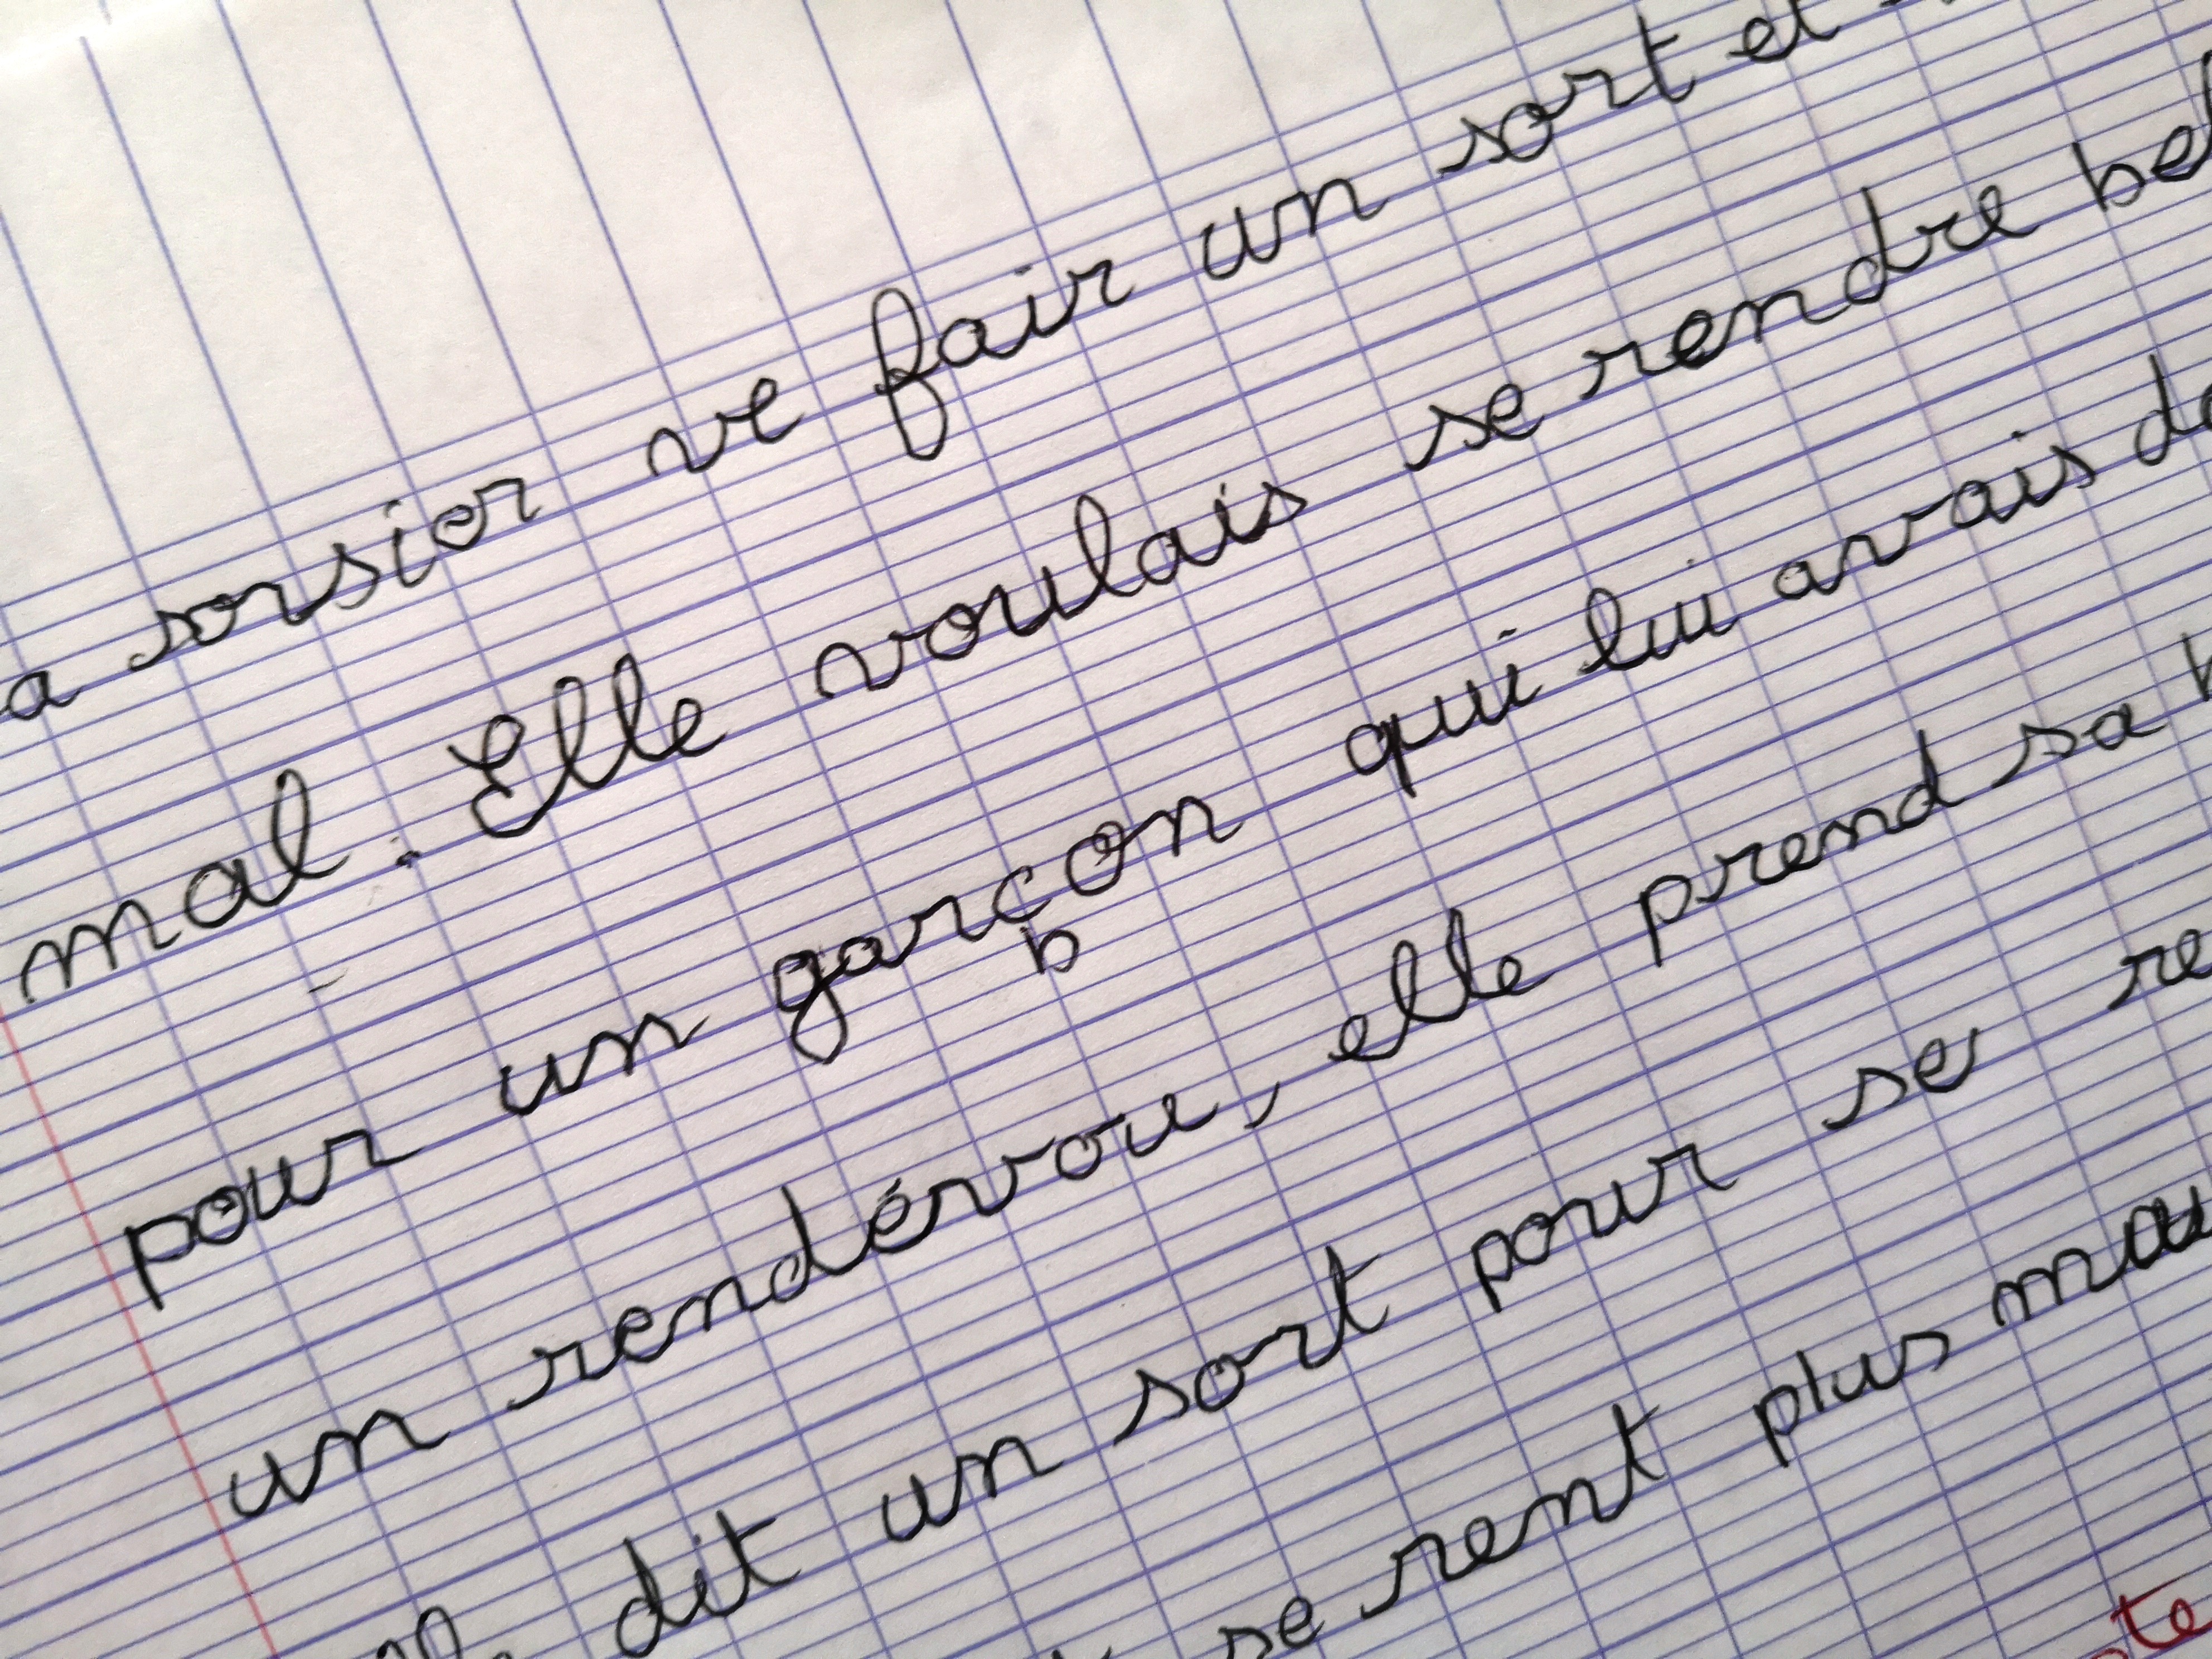 a sorsier ve fair un sort et
mal. Elle voulais se rendre
pour un garçon qui lui avais
un rendévou, elle prend sa
dit un sort pour se
se rent plus